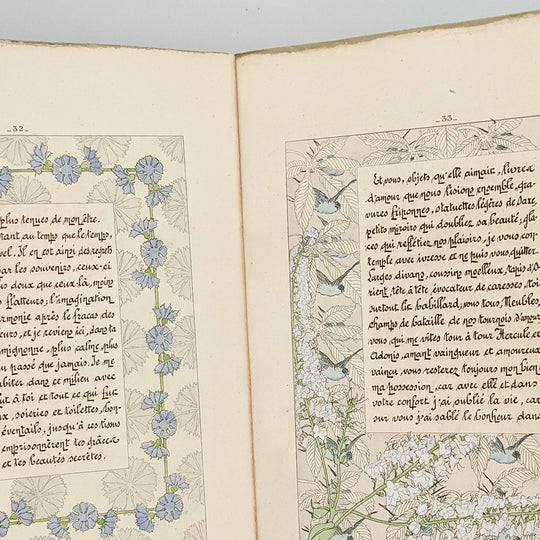 _32_
plus tenues de mon être.
rant au temps que le temps,
vel. Il en est ainsi des regrets
par les souvenirs, ceux-ci
us doux que ceux-là, moins
s flatteurs; l'imagination
armonie après le fracas des
eurs, et je reviens ici, dans ta
mignonne, plus calme, plus
u passé que jamais. Je me
abiter dans ce milieu avec
ut à toi et tout ce qui fut
ux, soieries et toilettes, bon-
éventails, jusqu'à ces tissus
emprisonnèrent tes grâces
et tes beautés secrètes.
_33_
Et vous, objets, qu'elle aimait, livres
d'amour que nous lisions ensemble, gra-
vures friponnes, statuettes légères de Saxe,
petits miroirs qui doubliez sa beauté; gla-
ces qui reflétiez nos plaisirs, je vous con-
temple avec ivresse et ne puis vous quitter.
Larges divans, coussins moëlleux, tapis d'O-
rient, tête à tête, évocateur de caresses, toi
surtout lit babillard; vous tous, Meubles,
champs de bataille de nos tournois d'amour
vous qui me vîtes tour à tour Hercule et
Adonis, amant vainqueur et amoureux
vaincu, vous resterez toujours mon bien
ma possession, car avec elle et dans
votre confort j'ai oublié la vie, car
sur vous j'ai sablé le bonheur dans